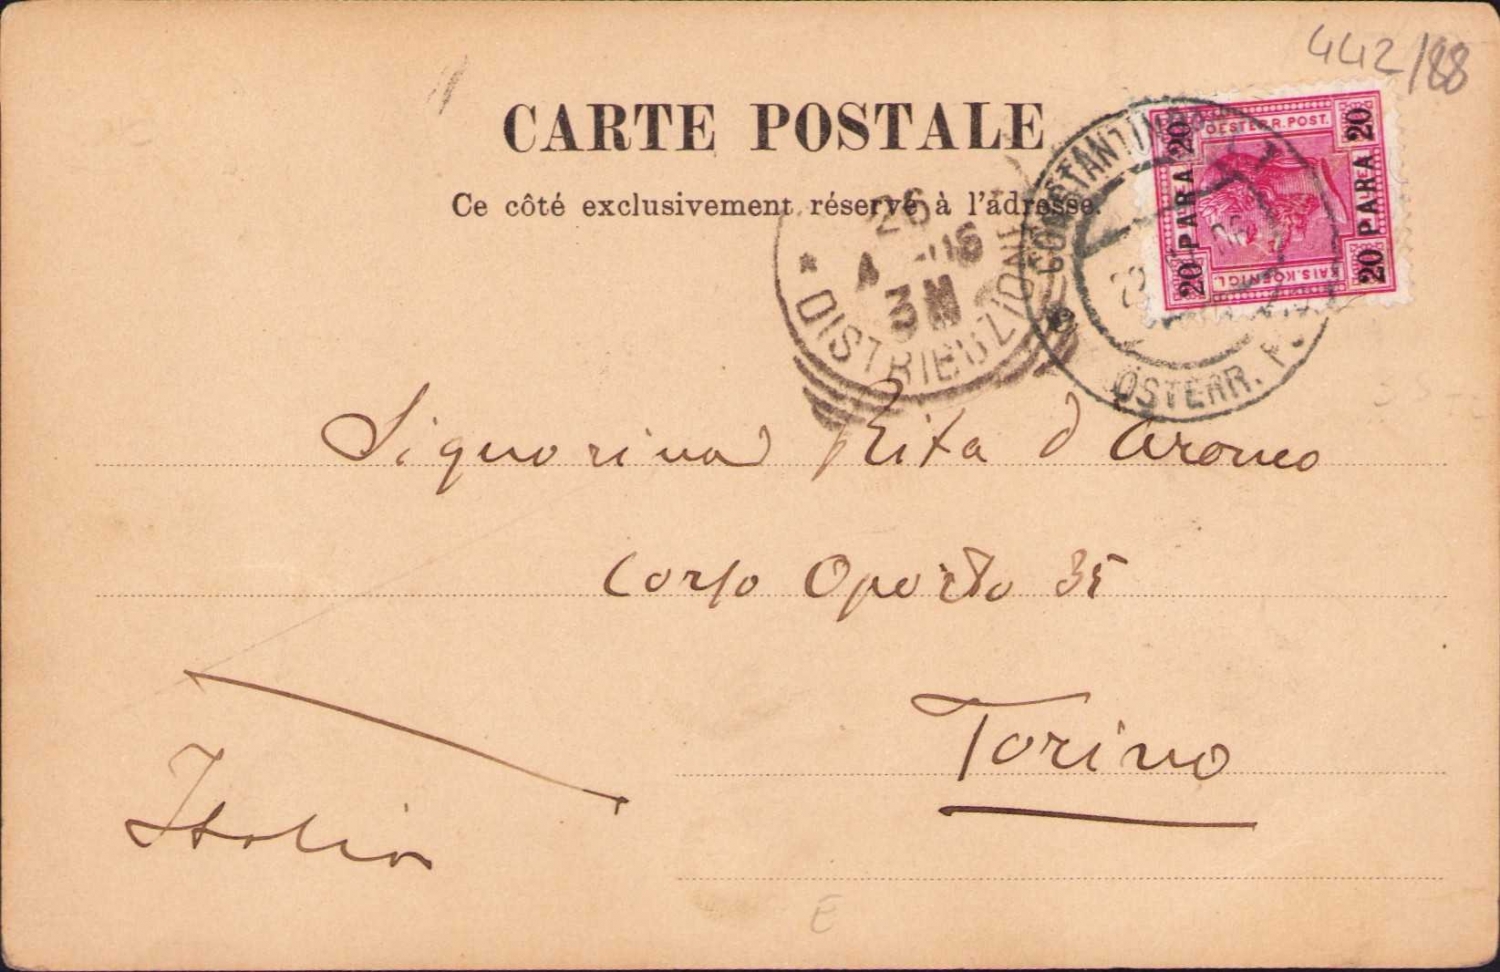 442/88
CARTE POSTALE
Ce côté exclusivement réservé à l'adresse.
OESTERR. POST.
20 PARA 20
20 PARA 20
KAIS. KOENIGL.
CONSTANTINOPEL
ÖSTERR. P.
26
4 -06
3M
* DISTRIBUZIONE
Signorina Rita d'Aronco
Corso Oporto 35
Torino
Italia
E